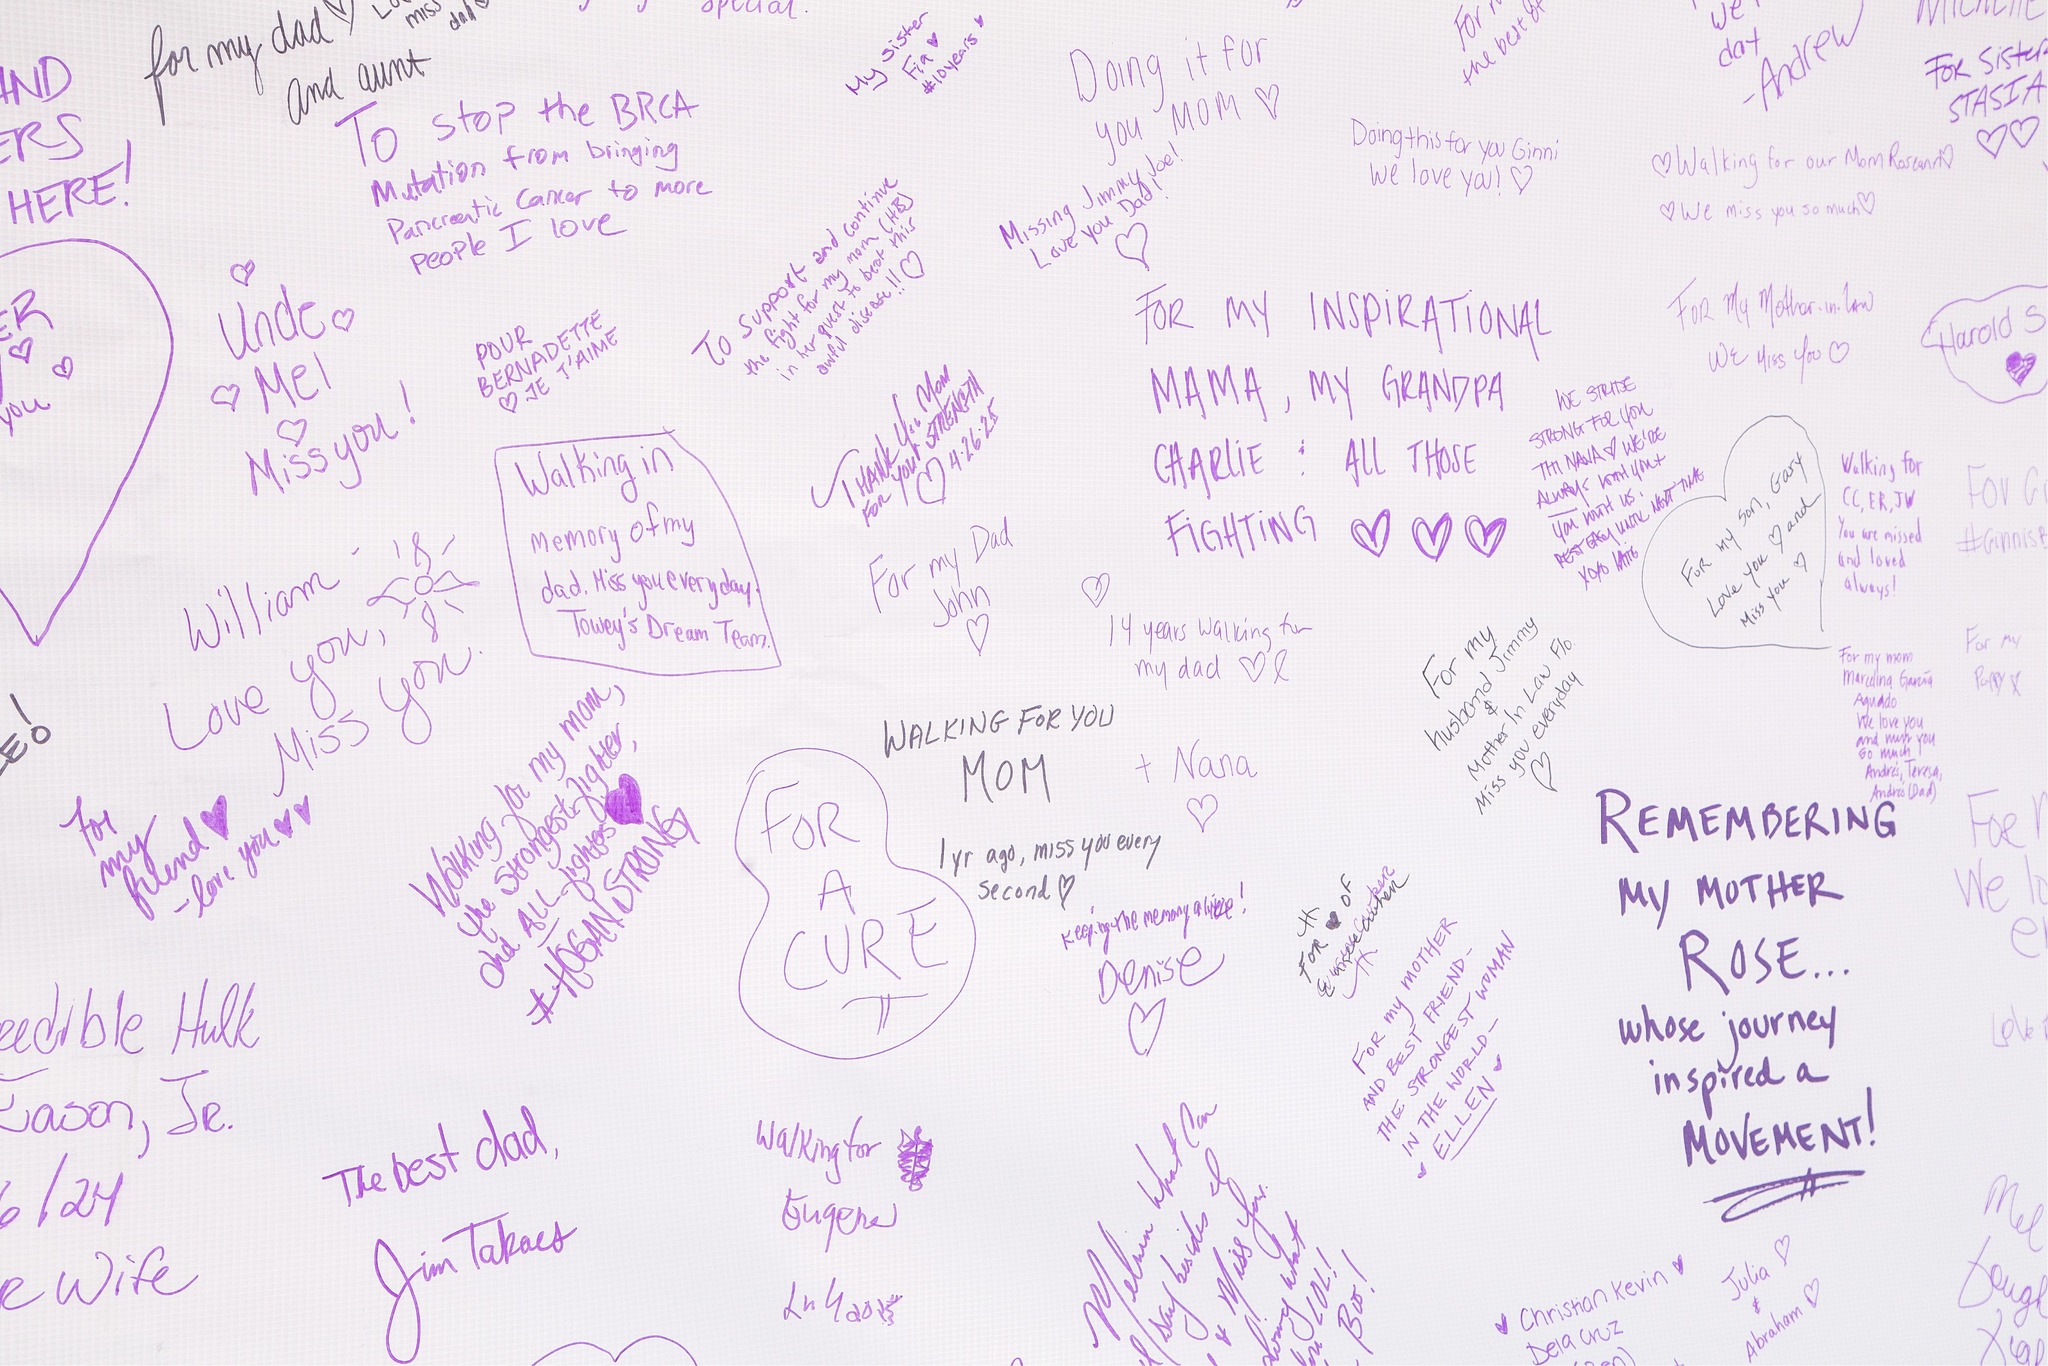 special.
for my dad
and aunt
miss
dad
My Sister
Fia
#10years
the best of
day
-Andrew
For Sister
STASIA
HERE!
To stop the BRCA
Mutation from bringing
Pancreatic Cancer to more
people I love
Doing it for
you MOM
Missing Jimmy Joe!
Love you Dad!
Doing this for you Ginni
We love you!
Walking for our Mom Roseann
We miss you so much
To Support and continue
the fight for my mom (HB)
in her quest to beat this
awful disease!!
Uncle
Mel
Miss you!
you
POUR
BERNADETTE
JE T'AIME
FOR MY INSPIRATIONAL
MAMA, MY GRANDPA
CHARLIE & ALL THOSE
FIGHTING
For My Mother-in-law
We Miss You
Harold S
Thank You Mom
For your STRENGTH
4.26.25
Walking in
Memory of my
dad. Miss you everyday.
Towey's Dream Team.
WE STRIDE
STRONG FOR YOU
NANA WE'RE
ALWAYS WITH YOU +
YOU WITH US.
REST EASY UNTIL NEXT TIME
XOXO
For my son, Gary
Love you and
Miss you
Walking for
CC, ER, JW
You are missed
and loved
always!
For my Dad
John
14 years walking for
my dad
William -
Love you,
Miss you.
For my
husband Jimmy
&
Mother In Law Flo
Miss you everyday
For my mom
Marcelina García
Aguado
We love you
and miss you
so much
Andrés, Teresa,
Andrés (Dad)
For my
Poppy
for
my
friend
-love you
Walking for my mom,
the strongest fighter,
and ALL fighters
#HOGANSTRONG
WALKING FOR YOU
MOM
+ Nana
1 yr ago, miss you every
second
FOR
A
CURE
Keeping the memory alive!
Denise
FOR OF
FOR MY MOTHER
AND BEST FRIEND-
THE STRONGEST WOMAN
IN THE WORLD-
ELLEN
REMEMBERING
MY MOTHER
ROSE...
whose journey
inspired a
MOVEMENT!
Hulk
Jason, Jr.
/24
Wife
The best dad,
Jim Takacs
Walking for
Eugene
Melvin what can
I say besides I
Miss You.
LOL!
Christian Kevin
Dela Cruz
Julia
&
Abraham